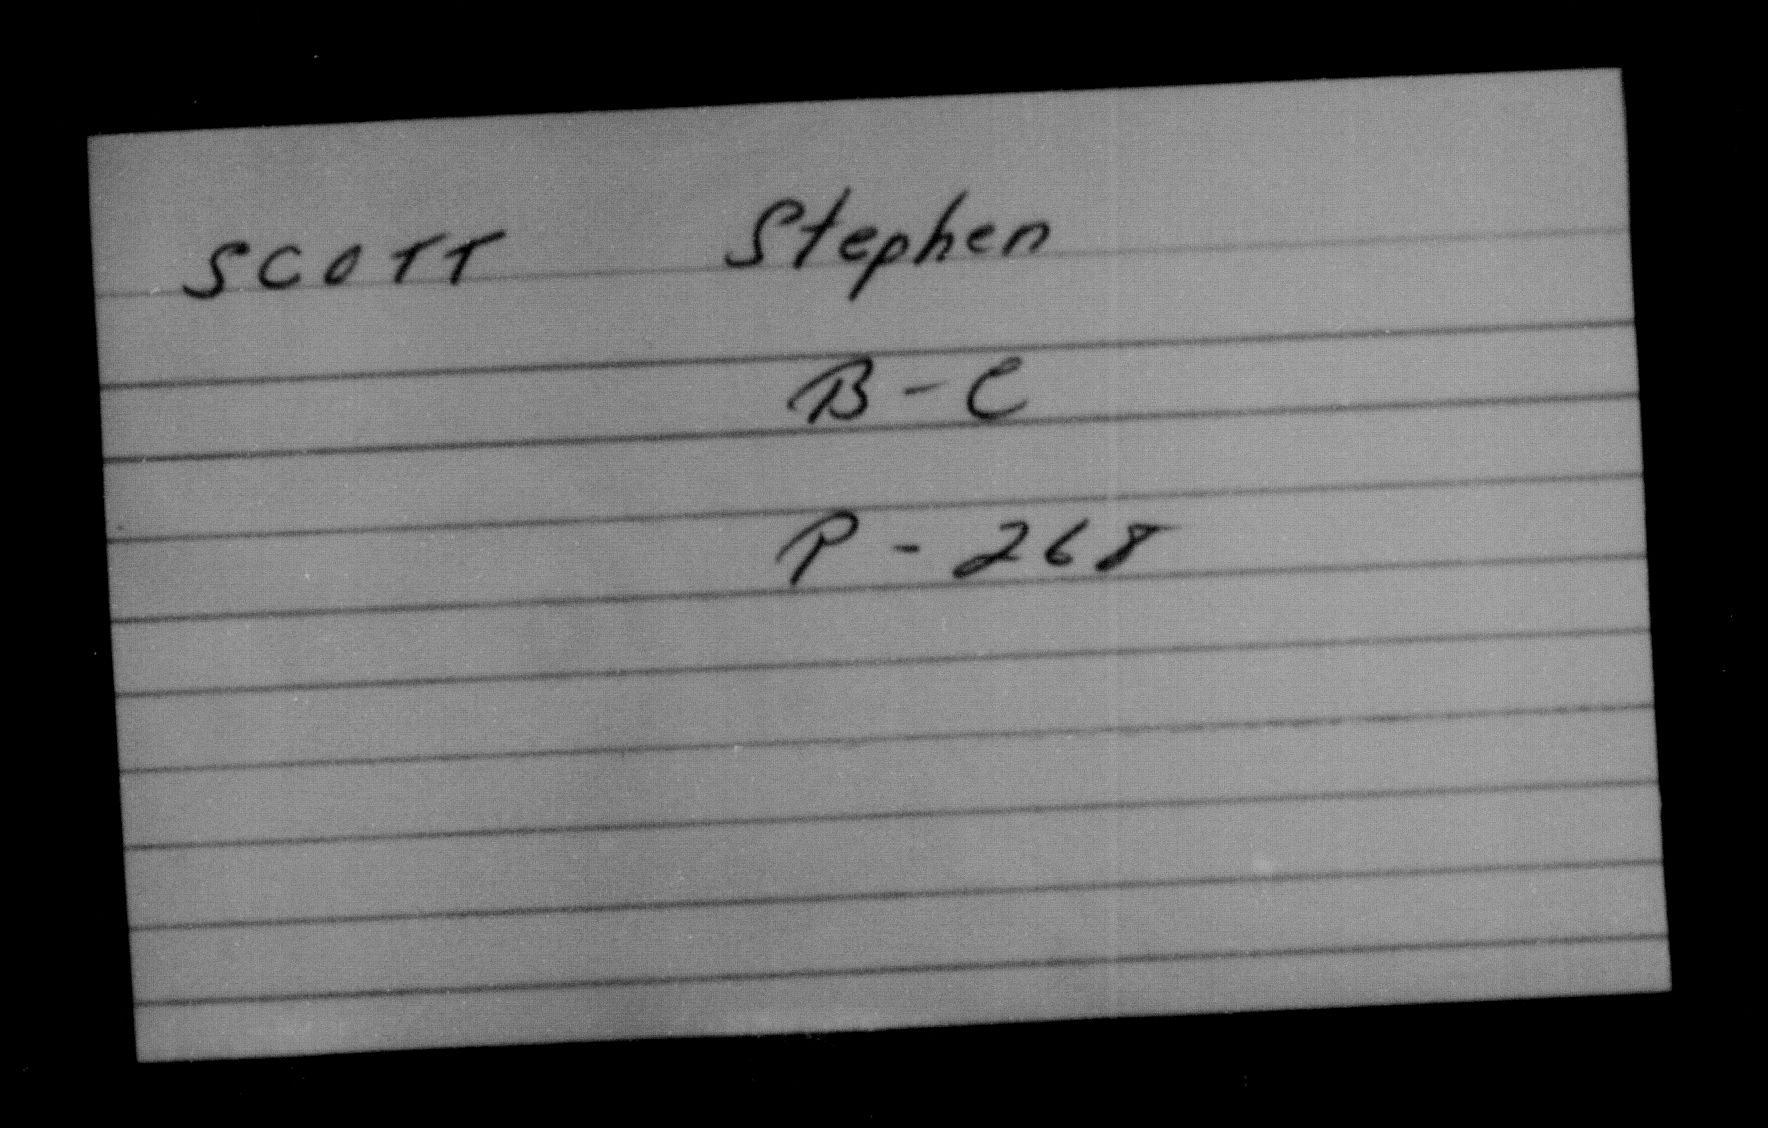 SCOTT Stephen
B-C
P-268